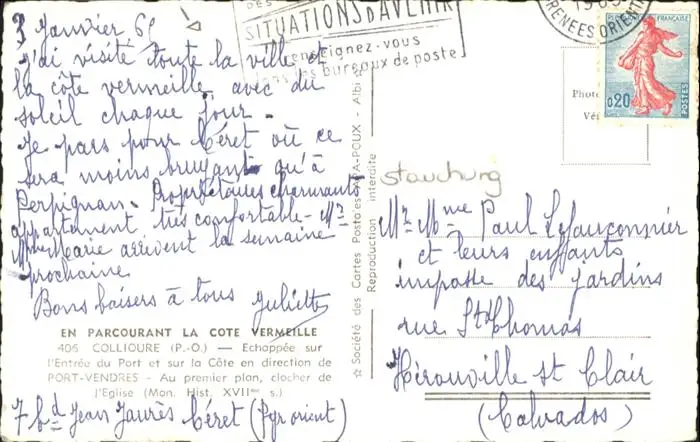 3 Janvier 6
j'ai visité toute la ville et
la côte vermeille avec du
soleil chaque jour.
Je pars pour Céret où ce
sera moins bruyant qu'à
Perpignan. Propriétaires charmants
appartement très confortable - Mr
Mme Marie arrivent la semaine
prochaine
Bons baisers à tous Juliette
EN PARCOURANT LA COTE VERMEILLE
405 COLLIOURE (P.-O.) — Echappée sur
l'Entrée du Port et sur la Côte en direction de
PORT-VENDRES - Au premier plan, clocher de
l'Eglise (Mon. Hist. XVIIme s.)
7 Bd Jean Jaurès Céret (Pyr orient)
☆ Société des Cartes Postales APA-POUX - Albi ☆
Reproduction interdite
DES
SITUATIONS D'AVENIR
renseignez-vous
dans les bureaux de poste
PYRENEES ORIENT
REPUBLIQUE FRANÇAISE
0,20
POSTES
Photo
Vér
Mr Mme Paul Lefauconnier
et leurs enfants
impasse des jardins
rue St Thomas
Hérouville St Clair
(Calvados)